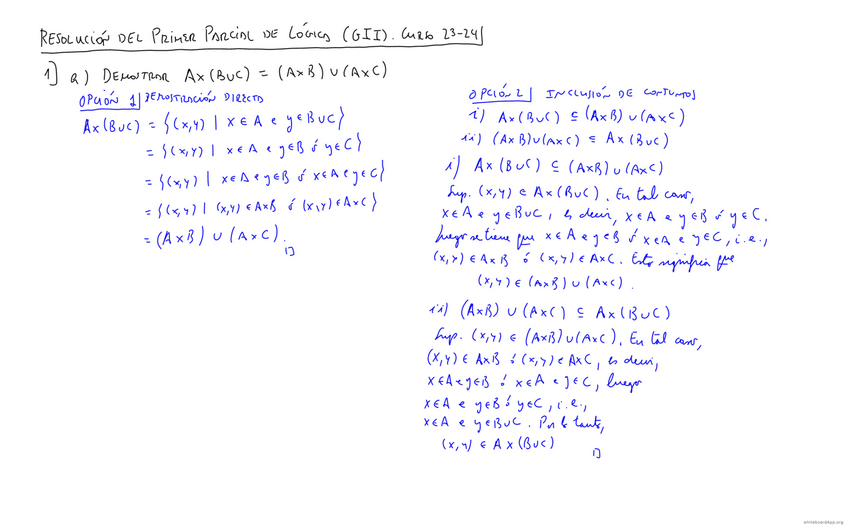 RESOLUCIÓN DEL PRIMER PARCIAL DE LÓGICA (GII). CURSO 23-24
1] a) DEMOSTRAR A×(B∪C) = (A×B) ∪ (A×C)
OPCIÓN 1 DEMOSTRACIÓN DIRECTA
A×(B∪C) = {(x,y) | x∈A e y∈B∪C}
= {(x,y) | x∈A e y∈B ó y∈C}
= {(x,y) | x∈A e y∈B ó x∈A e y∈C}
= {(x,y) | (x,y)∈A×B ó (x,y)∈A×C}
= (A×B) ∪ (A×C).
□
OPCIÓN 2 INCLUSIÓN DE CONJUNTOS
i) A×(B∪C) ⊆ (A×B)∪(A×C)
ii) (A×B)∪(A×C) ⊆ A×(B∪C)
i) A×(B∪C) ⊆ (A×B)∪(A×C)
Sup. (x,y) ∈ A×(B∪C). En tal caso,
x∈A e y∈B∪C, es decir, x∈A e y∈B ó y∈C.
Luego se tiene que x∈A e y∈B ó x∈A e y∈C, i.e.,
(x,y)∈A×B ó (x,y)∈A×C. Esto significa que
(x,y)∈(A×B)∪(A×C).
ii) (A×B)∪(A×C) ⊆ A×(B∪C)
Sup. (x,y)∈(A×B)∪(A×C). En tal caso,
(x,y)∈A×B ó (x,y)∈A×C, es decir,
x∈A e y∈B ó x∈A e y∈C, luego
x∈A e y∈B ó y∈C, i.e.,
x∈A e y∈B∪C. Por lo tanto,
(x,y)∈A×(B∪C)
□
whiteboardapp.org